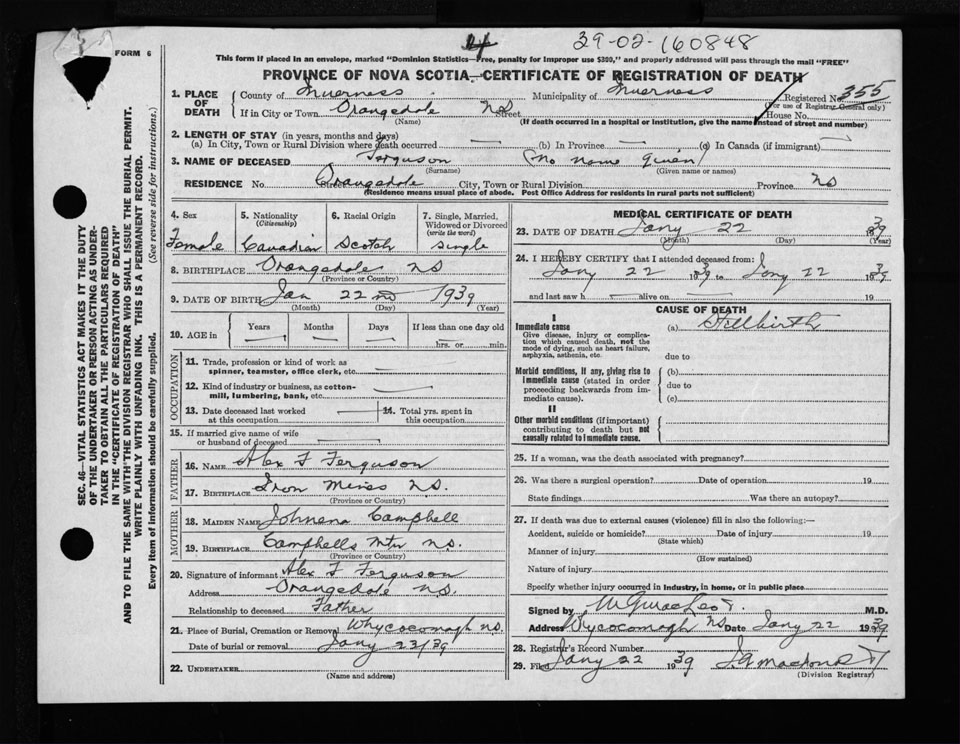 FORM 6
4
39-02-160848
This form if placed in an envelope, marked "Dominion Statistics—Free, penalty for improper use $300," and properly addressed will pass through the mail "FREE"
PROVINCE OF NOVA SCOTIA—CERTIFICATE OF REGISTRATION OF DEATH
1. PLACE OF DEATH
County of Inverness Municipality of Inverness Registered No. 355
(For use of Registrar General only)
If in City or Town Orangedale NS Street House No.
(Name) (If death occurred in a hospital or institution, give the name instead of street and number)
2. LENGTH OF STAY (in years, months and days)
(a) In City, Town or Rural Division where death occurred — (b) In Province — (c) In Canada (if immigrant)
3. NAME OF DECEASED Ferguson (No name given)
(Surname) (Given name or names)
RESIDENCE No. Street Orangedale City, Town or Rural Division Province NS
(Residence means usual place of abode. Post Office Address for residents in rural parts not sufficient)
4. Sex Female
5. Nationality (Citizenship) Canadian
6. Racial Origin Scotch
7. Single, Married, Widowed or Divorced (write the word) Single
8. BIRTHPLACE Orangedale NS
(Province or Country)
9. DATE OF BIRTH Jan 22 1939
(Month) (Day) (Year)
10. AGE in Years — Months — Days — If less than one day old hrs. or min.
OCCUPATION
11. Trade, profession or kind of work as spinner, teamster, office clerk, etc. —
12. Kind of industry or business, as cotton-mill, lumbering, bank, etc. —
13. Date deceased last worked at this occupation —
14. Total yrs. spent in this occupation
15. If married give name of wife or husband of deceased —
FATHER
16. NAME Alex F Ferguson
17. BIRTHPLACE Iron Mines N.S.
(Province or Country)
MOTHER
18. MAIDEN NAME Johnena Campbell
19. BIRTHPLACE Campbells Mtn N.S.
(Province or Country)
20. Signature of informant Alex F Ferguson
Address Orangedale N.S.
Relationship to deceased Father
21. Place of Burial, Cremation or Removal Whycocomagh N.S.
Date of burial or removal Jany 23/39
22. UNDERTAKER
(Name and address)
MEDICAL CERTIFICATE OF DEATH
23. DATE OF DEATH Jany 22 1939
(Month) (Day) (Year)
24. I HEREBY CERTIFY that I attended deceased from:
Jany 22 1939 to Jany 22 1939
and last saw h alive on — 19
CAUSE OF DEATH
I
Immediate cause
Give disease, injury or complication which caused death, not the mode of dying, such as heart failure, asphyxia, asthenia, etc.
(a) Stillbirth
due to
Morbid conditions, if any, giving rise to immediate cause (stated in order proceeding backwards from immediate cause).
(b)
due to
(c)
II
Other morbid conditions (if important) contributing to death but not causally related to immediate cause.
25. If a woman, was the death associated with pregnancy?
26. Was there a surgical operation? Date of operation 19
State findings Was there an autopsy?
27. If death was due to external causes (violence) fill in also the following:—
Accident, suicide or homicide? Date of injury 19
(State which)
Manner of injury
(How sustained)
Nature of injury
Specify whether injury occurred in industry, in home, or in public place
Signed by M G MacLeod M.D.
Address Wycocomagh NS Date Jany 22 1939
28. Registrar's Record Number
29. Filed Jany 22 1939 J A Macdonald
(Division Registrar)
SEC. 46—VITAL STATISTICS ACT MAKES IT THE DUTY
OF THE UNDERTAKER OR PERSON ACTING AS UNDERTAKER TO OBTAIN ALL THE PARTICULARS REQUIRED
IN THE "CERTIFICATE OF REGISTRATION OF DEATH"
AND TO FILE THE SAME WITH THE DIVISION REGISTRAR WHO SHALL ISSUE THE BURIAL PERMIT.
WRITE PLAINLY WITH UNFADING INK. THIS IS A PERMANENT RECORD.
Every item of information should be carefully supplied. (See reverse side for instructions.)